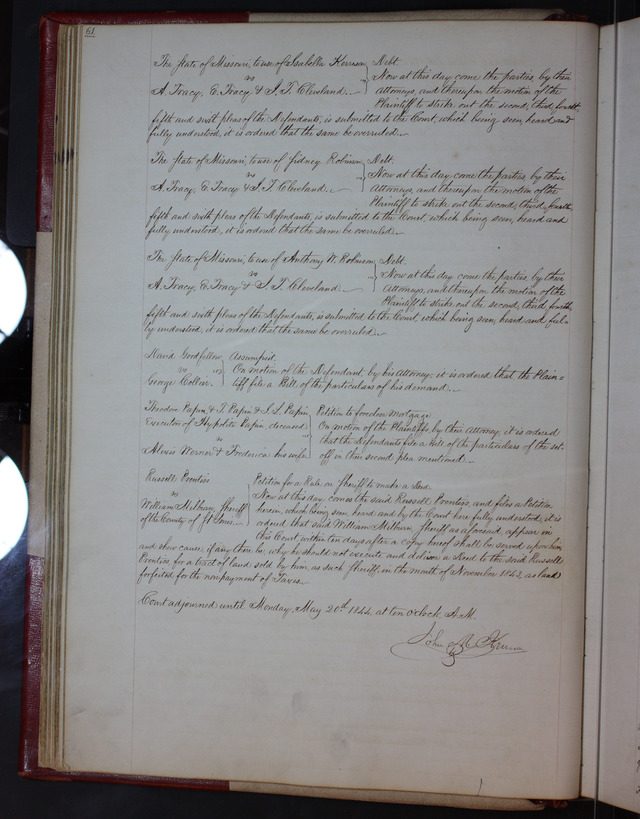 61
The State of Missouri, to use of Isabella
vs
A. Tracy, E. Tracy & S. T. Cleveland.
Debt
Now at this day come the parties, by their
Attorneys, and thereupon the motion of the
Plaintiff to strike out the second, third, fourth
fifth and sixth pleas of the Defendants, is submitted to the Court, which being seen, heard and
fully understood, it is ordered that the same be overruled.
The State of Missouri, to use of Sidney Robinson
vs
A. Tracy, E. Tracy & S. T. Cleveland.
Debt.
Now at this day come the parties, by their
Attorneys, and thereupon the motion of the
Plaintiff to strike out the second, third, fourth,
fifth and sixth pleas of the Defendants, is submitted to the Court, which being seen, heard and
fully understood, it is ordered that the same be overruled.
The State of Missouri, to use of Anthony W. Robinson
vs
A. Tracy, E. Tracy & S. T. Cleveland.
Debt.
Now at this day come the parties, by their
Attorneys, and thereupon the motion of the
Plaintiff to strike out the second, third, fourth,
fifth and sixth pleas of the Defendants, is submitted to the Court, which being seen, heard and ful-
ly understood, it is ordered that the same be overruled.
David Goodfellow
vs
George Collier.
Assumpsit.
On motion of the Defendant, by his Attorney it is ordered that the Plain=
tiff file a Bill of the particulars of his demand.
Theodore Papin & T. Papin & S. L. Papin
Executors of Hypolite Papin, deceased
vs
Alvis Werner & Frederica his wife
Petition to foreclose Mortgage
On motion of the Plaintiffs by their Attorney it is ordered
that the Defendants file a Bill of the particulars of the set-
off in their second plea mentioned.
Russell Prentiss
vs
William Milburn, Sheriff
of the County of St. Louis.
Petition for a Rule on Sheriff to make a Deed
Now at this day comes the said Russell Prentiss, and files a Petition
herein, which being seen heard and by the Court here fully understood, it is
ordered that said William Milburn, Sheriff as aforesaid, appear in
this Court within ten days after a copy hereof shall be served upon him
and show cause, if any there be, why he should not execute and deliver a Deed to the said Russell
Prentiss for a tract of land sold by him, as such Sheriff, in the month of November 1843, as land
forfeited for the nonpayment of Taxes.
Court adjourned until Monday, May 20th 1844, at ten o'clock A.M.
John M. Krum